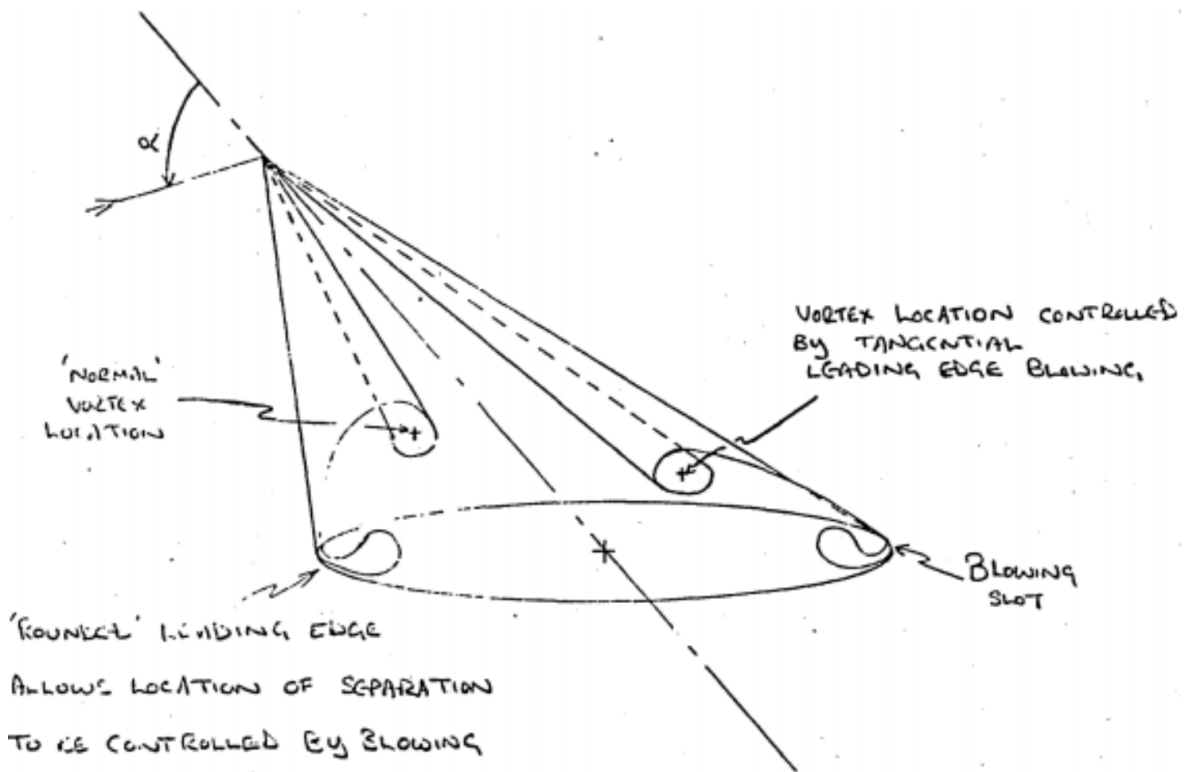 α
VORTEX LOCATION CONTROLLED
BY TANGENTIAL
LEADING EDGE BLOWING
'NORMAL'
VORTEX
LOCATION
BLOWING
SLOT
'ROUNDED' LEADING EDGE
ALLOWS LOCATION OF SEPARATION
TO BE CONTROLLED BY BLOWING